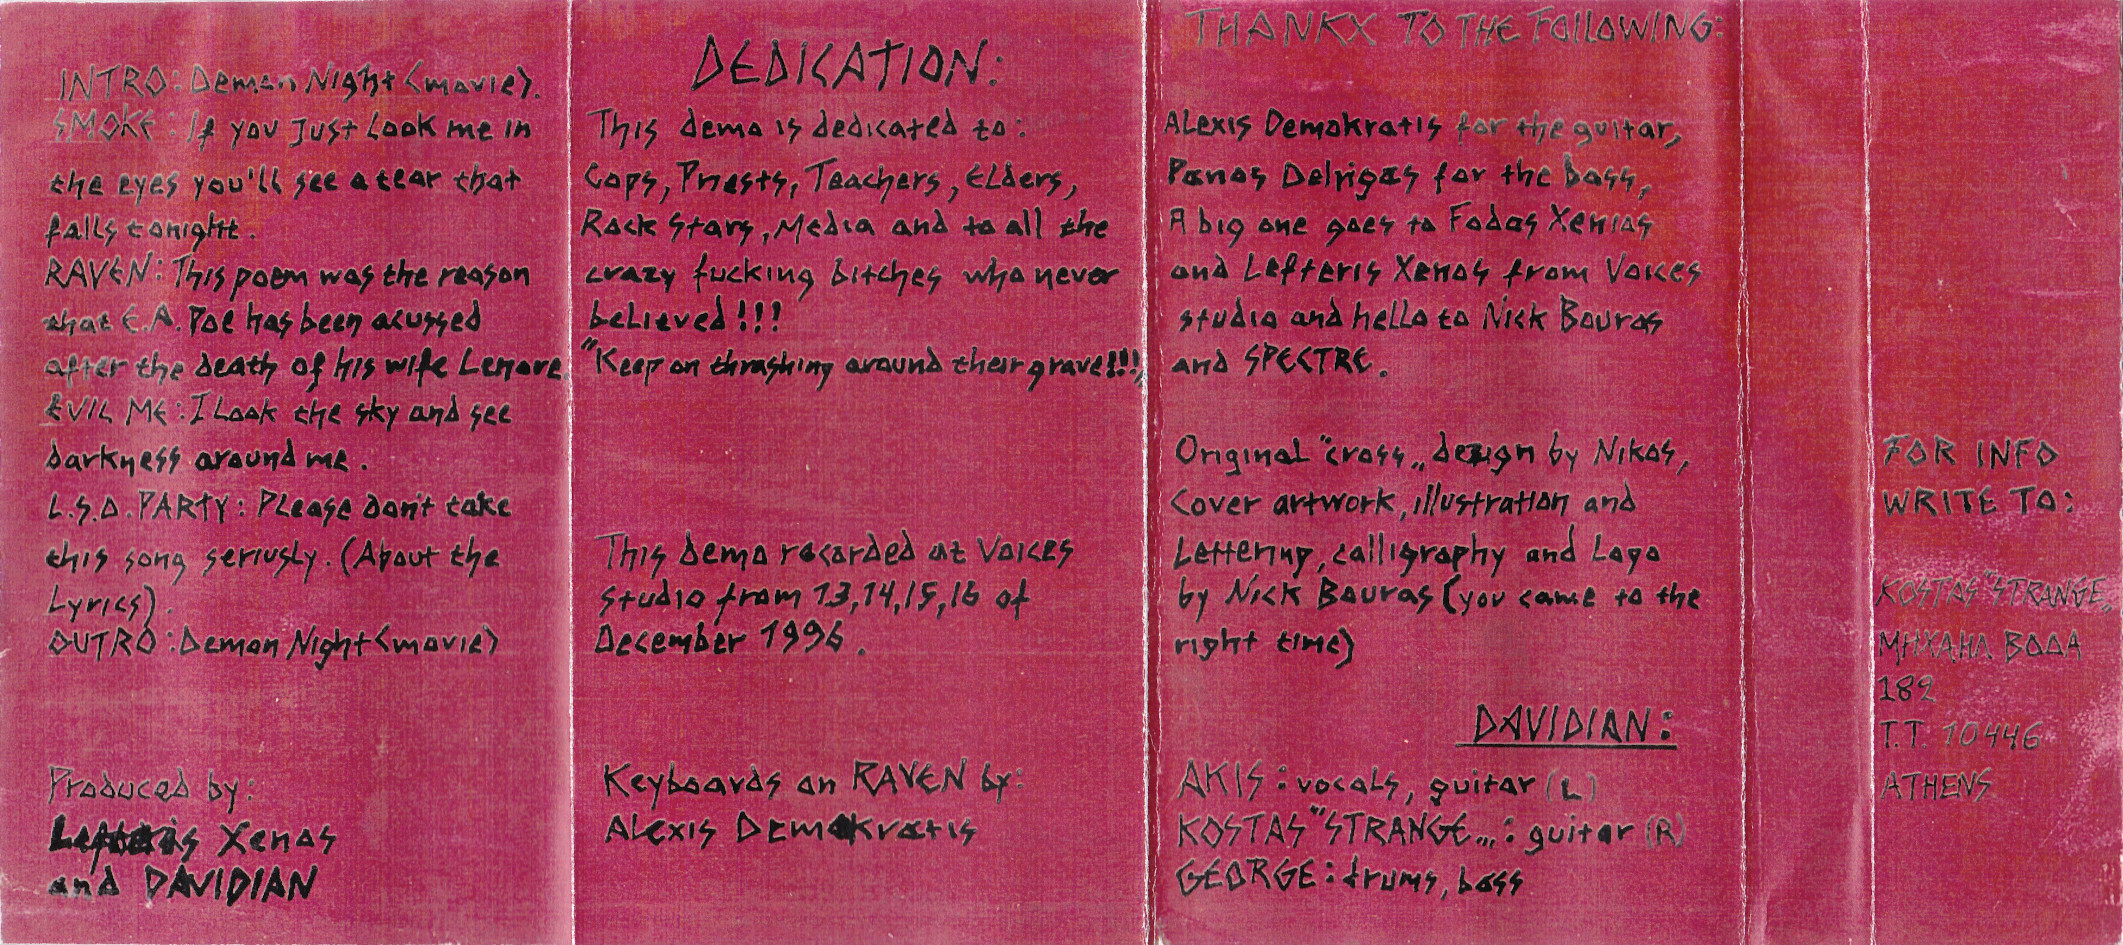 INTRO: Demon Night <movie>.
SMOKE: If you Just Look me in
the eyes you'll see a tear that
falls tonight.
RAVEN: This poem was the reason
that E.A. Poe has been acussed
after the death of his wife Lenore.
EVIL ME: I Look the sky and see
darkness around me.
L.S.D. PARTY: PLease don't take
this song seriusly. (About the
Lyrics).
OUTRO: Demon Night <movie>
Produced by:
Lefteris Xenos
and DAVIDIAN
DEDICATION:
This demo is dedicated to:
Cops, Priests, Teachers, ELders,
Rock Stars, Media and to all the
crazy fucking bitches who never
beLieved!!!
"Keep on thrashing around their grave!!!„
This demo recorded at Voices
studio from 13,14,15,16 of
December 1996.
Keyboards on RAVEN by:
Alexis Demokratis
THANKX TO THE FOLLOWING:
ALexis Demokratis for the guitar,
Panos Delrigas for the bass,
A big one goes to Fodas Xenias
and Lefteris Xenos from Voices
studio and hello to Nick Bouras
and SPECTRE.
Original "cross„ dezign by Nikos,
Cover artwork, illustration and
Lettering, calligraphy and Logo
by Nick Bouras (you came to the
right time)
DAVIDIAN:
AKIS: vocals, guitar (L)
KOSTAS "STRANGE„: guitar (R)
GEORGE: drums, bass
FOR INFO
WRITE TO:
KOSTAS "STRANGE„
ΜΗΧΑΗΛ ΒΟΔΑ
182
T.T. 10446
ATHENS